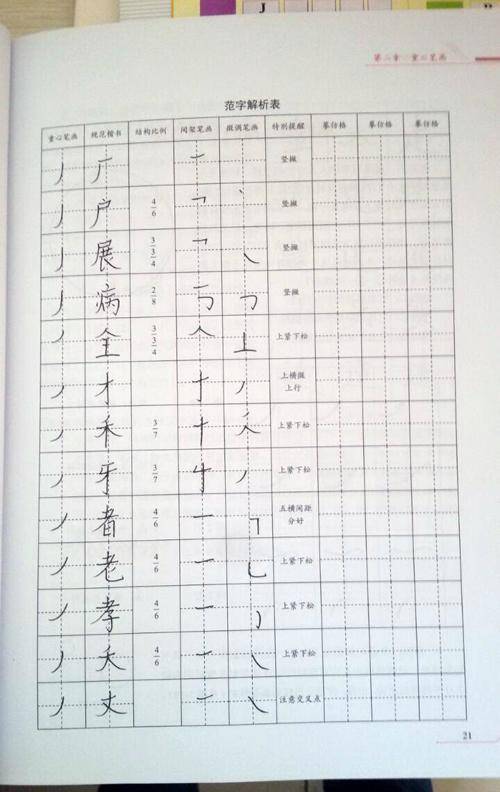 J
第二章 重心笔画
范字解析表
重心笔画 规范楷书 结构比例 间架笔画 微调笔画 特别提醒 摹仿格 摹仿格 摹仿格
丿 厂 一 竖撇
丿 户 4/6 ㇕ 丶 竖撇
丿 展 3/3/4 ㇕ ㇏ 竖撇
丿 病 2/8 竖撇
丿 全 3/3/4 𠆢 上 上紧下松
丿 才 十 丿 上横撇上行
丿 禾 3/7 十 上紧下松
丿 牙 3/7 丿 上紧下松
丿 者 4/6 一 ㇕ 五横间距分好
丿 老 4/6 一 ㇗ 上紧下松
丿 孝 4/6 一 上紧下松
丿 夭 4/6 一 ㇏ 上紧下松
丿 丈 一 ㇏ 注意交叉点
21